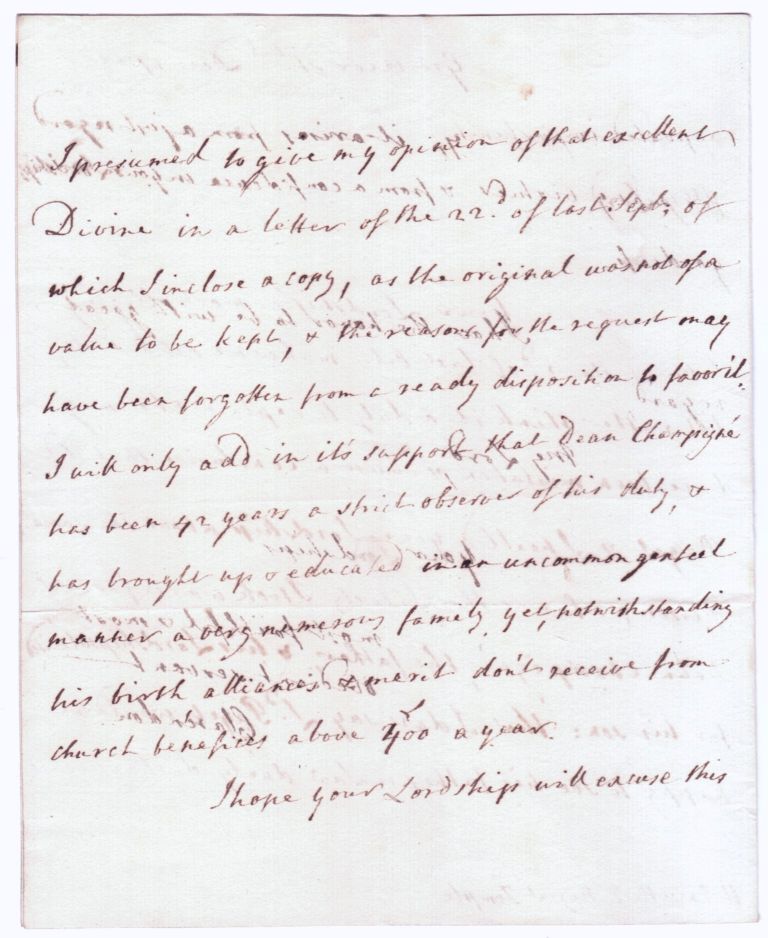 I presumed to give my opinion of that excellent
Divine in a letter of the 22.d of last Sept: of
which I inclose a copy, as the original was not of a
value to be kept, & the reasons for the request may
have been forgotten from a ready disposition to favor it.
I will only add in it's support that Dean Champigné
has been 42 years a strict observer of his duty, &
has brought up & educated in an uncommon genteel
manner a very numerous family, yet, notwithstanding
his birth alliances & merit don't receive from
church benefices above 400 a year.
I hope your Lordships will excuse this